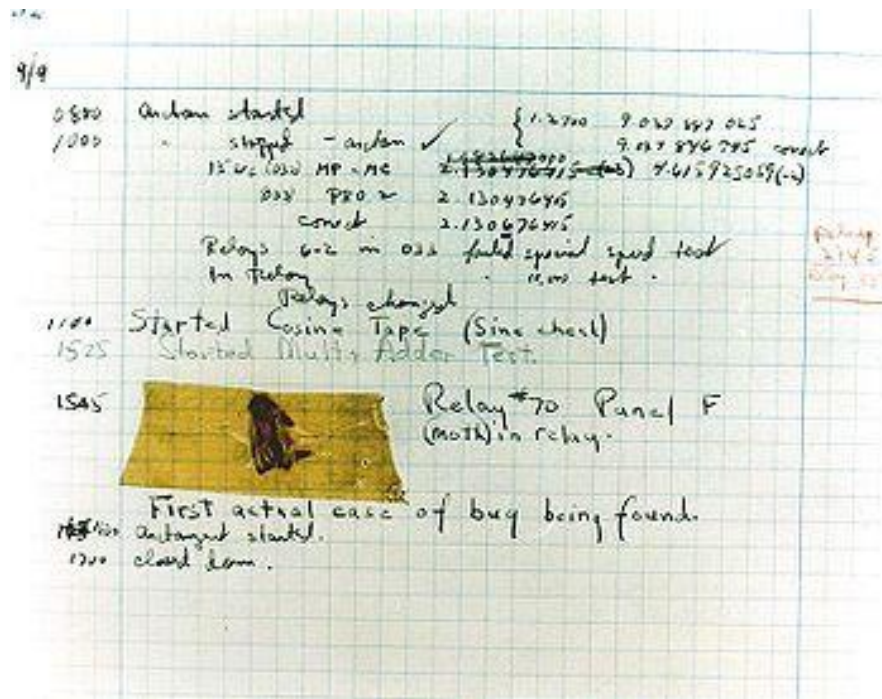 9/9
0800 Antan started
1000 " stopped - antan ✓ { 1.2700 9.037 847 025
9.037 846 995 correct
13"uc (032) MP - MC 2.130476415 4.615925059(-2)
033 PRO 2 2.130476415
correct 2.130676415
Relays 6-2 in 033 failed special speed test
In Relay " 11,000 test .
Relays changed
1100 Started Cosine Tape (Sine check)
1525 Started Mult+Adder Test.
1545 Relay #70 Panel F
(moth) in relay.
First actual case of bug being found.
1630 antangent started.
1700 closed down.